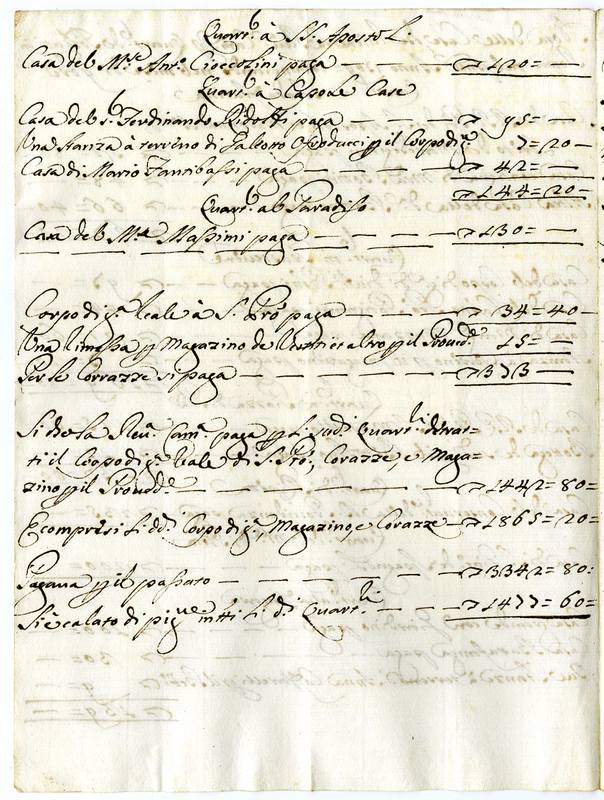 Quart.e à SS. Apostoli.
Casa del M.se Ant.o Cioccolini paga — — — 120= —
Quart.e à Capo le Case
Casa del s.r Ferdinando Ridolfi paga — — — 95= —
Una stanza à terreno di p il Corpo di g.a 7=20 —
Casa di Mario paga — — — 42= —
144=20 —
Quart.e al Paradiso
Casa del M.se Massimi paga — — — 130= —
Corpo di g.a Reale à S. Pro paga — — — 34=40 —
Una Rimessa p Magazino de et altro p il Proved.e 15= —
Per le Corazze si paga — — — 373 —
Si che la Rev.a Cam.a paga p li sud.i Quart.i detrat=
ti il Corpo di g.a Reale di S. Pro, Corazze, e Maga=
zino p il Proved.e — — — 1442=80=
E compresi li dd.i Corpo di g.a, Magazino, e Corazze — 1865=20=
Pagava p il passato — — — 3342=80:
Si è calato di pig.ne in tti li d.i Quart.i — — — 1477=60=